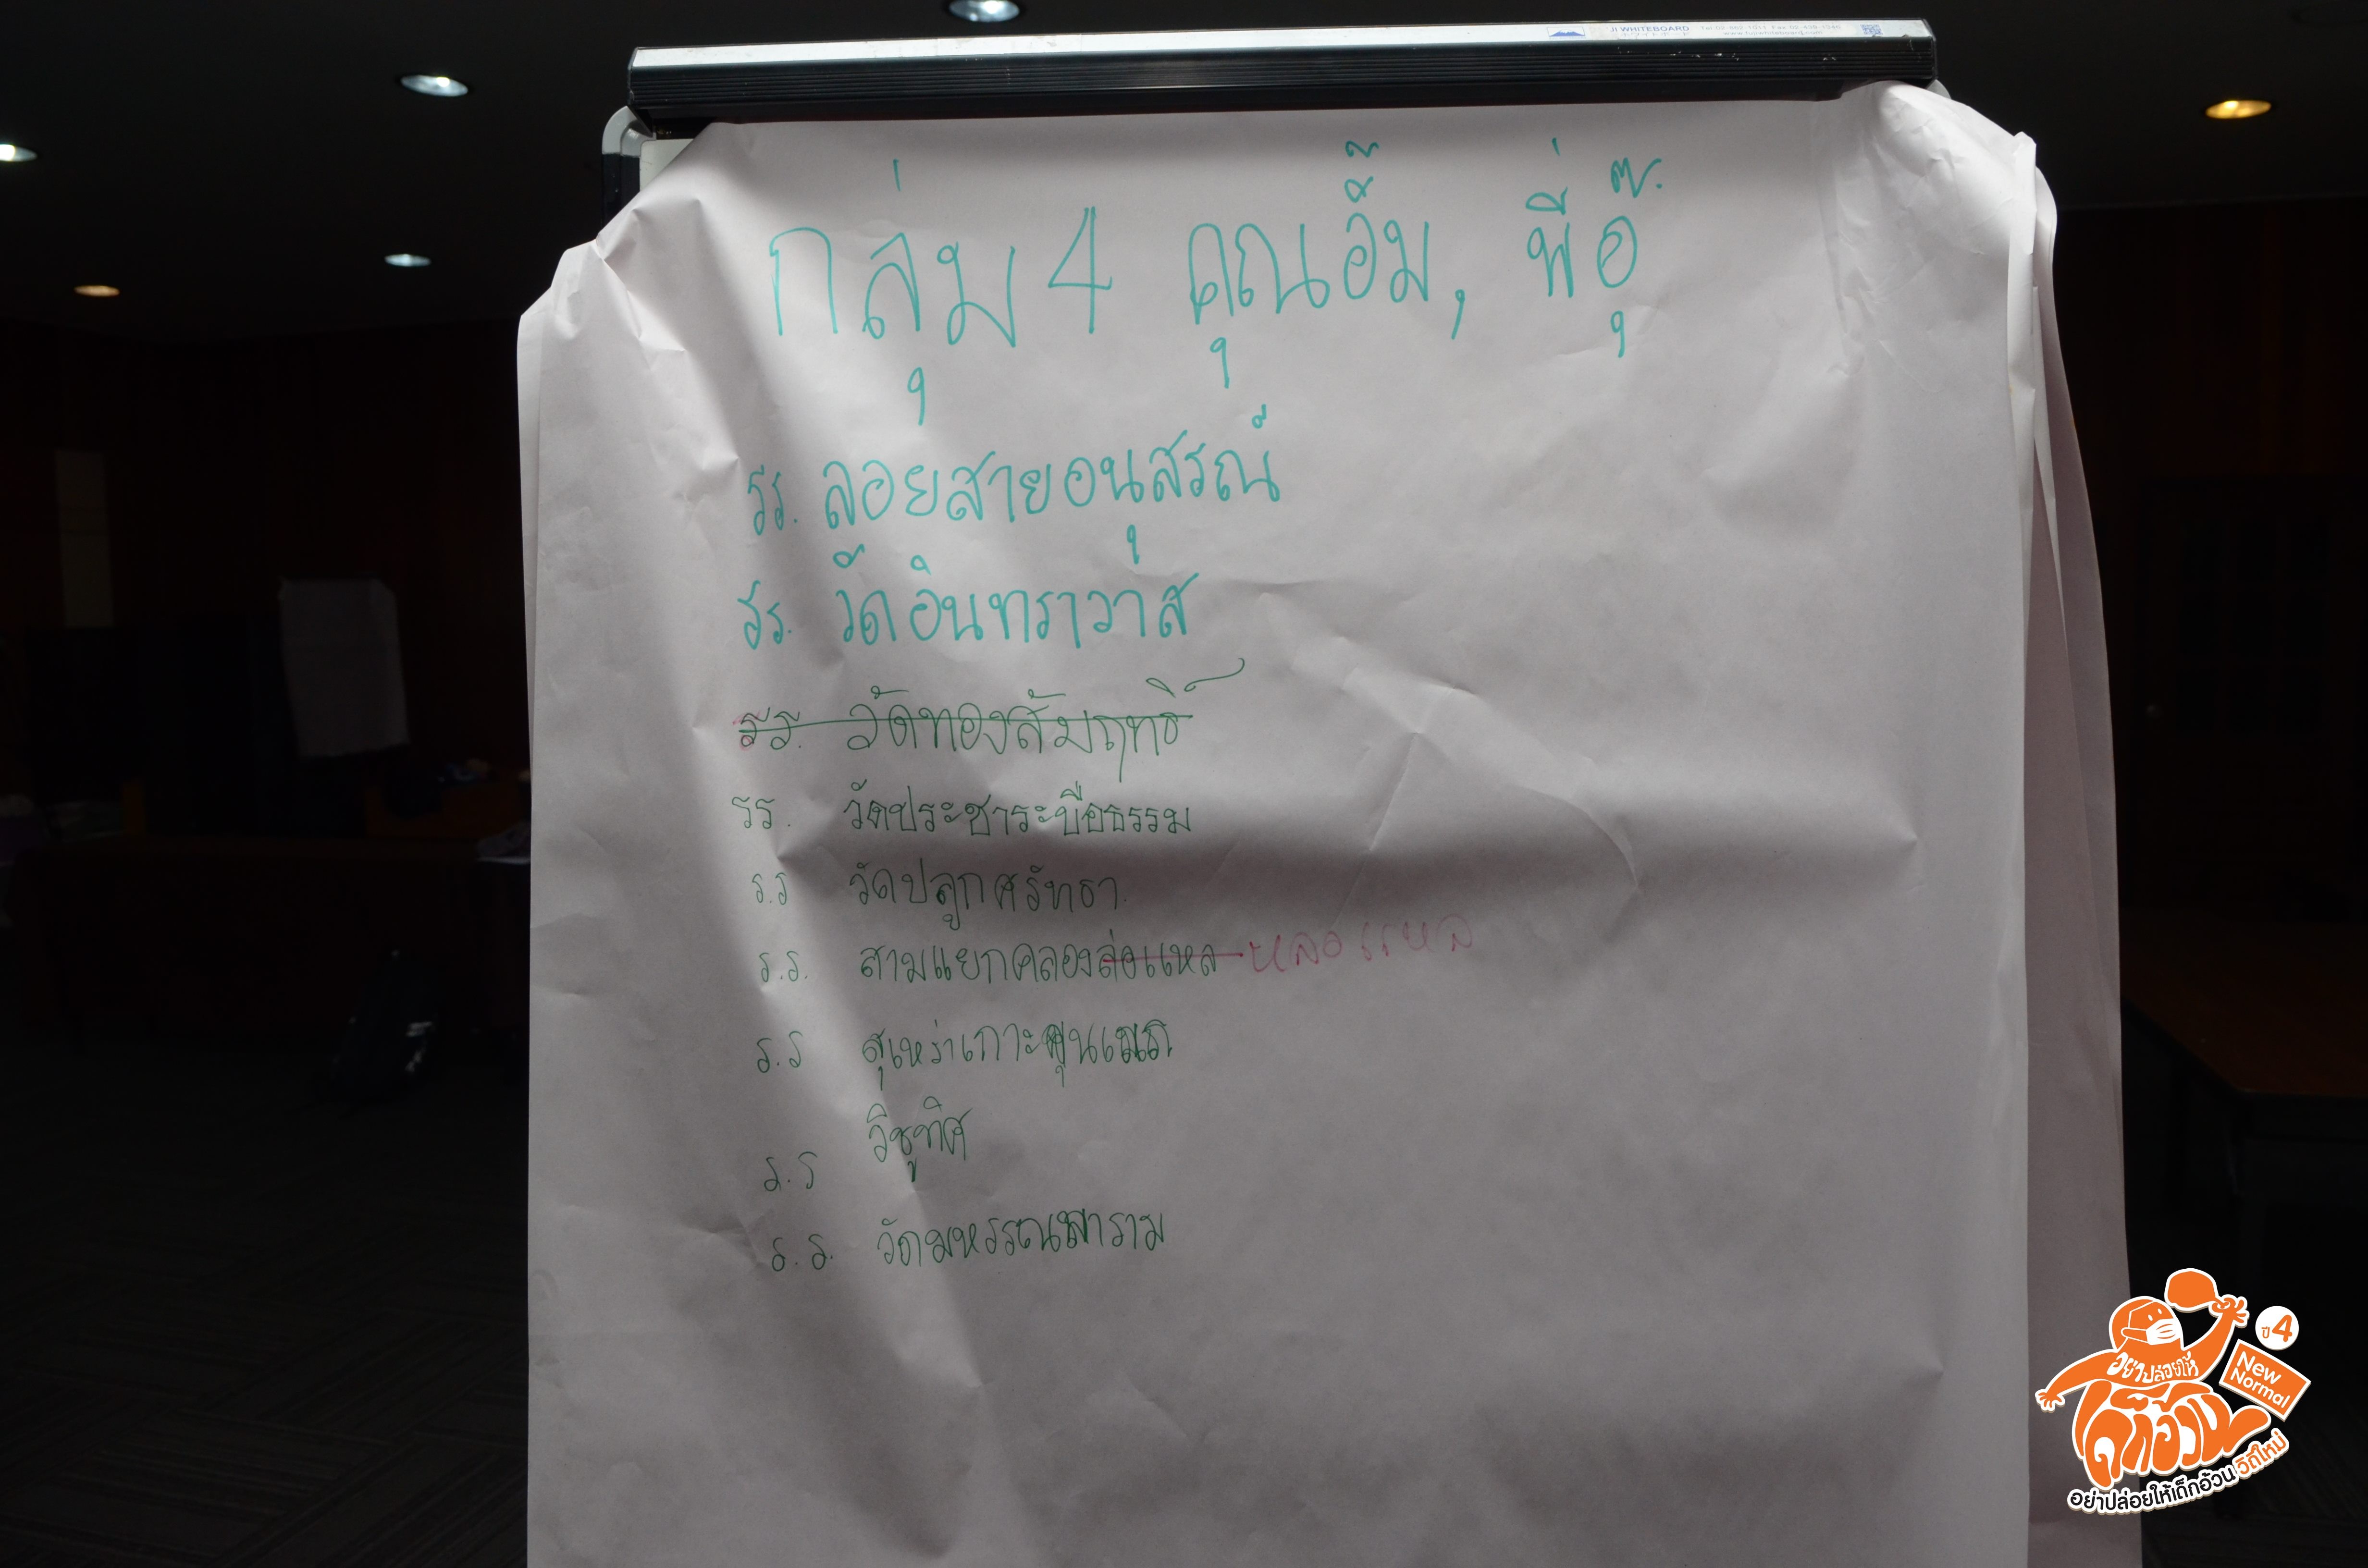 JI WHITEBOARD
กลุ่ม 4 คุณอั๋ม, พี่อุ๊
รร. ลอยสายอนุสรณ์
รร. วัดอินทราวาส
รร. วัดทองสัมฤทธิ์
รร. วัดประชาระบือธรรม
ร.ร วัดปลูกศรัทธา
ร.ร. สามแยกคลองล่อแหล หลอแหล
ร.ร สุเหร่าเกาะขุนเณร
ร.ร วิชูทิศ
ร.ร. วัดมหรรณพาราม
ปี 4
New Normal
อย่าปล่อยให้
เด็กอ้วน
อย่าปล่อยให้เด็กอ้วน วิถีใหม่